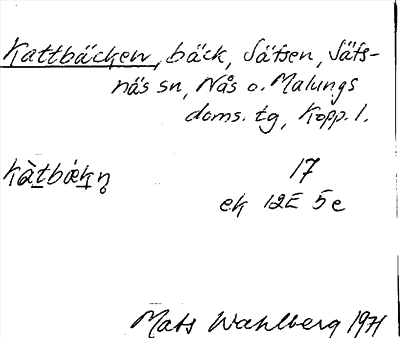 Kattbäcken, bäck, Säfsen, Säfs-
näs sn, Nås o. Malungs
doms. tg, Kopp. l.
kàtbækn̥ 17
ek 12E 5e
Mats Wahlberg 1971